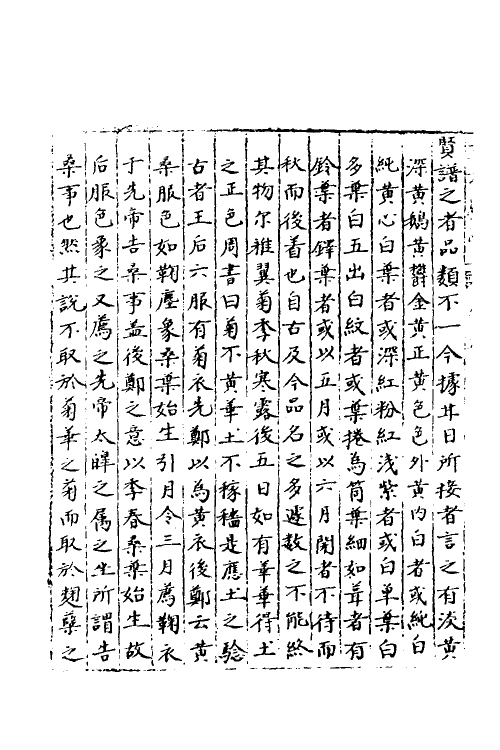 贒譜之者品類不一今據耳目所接者言之有淡黄
深黄鵝黄欝金黄正黄色色外黄内白者或純白
純黄心白葉者或深紅粉紅淺紫者或白单葉白
多葉白五出白紋者或葉捲為筒葉細如茸者有
鈴葉者鐸葉者或以五月或以六月開者不待而
秋而後着也自古及今品名之多遽数之不能終
其物尔雅翼菊季秋寒露後五日如有華華得土
之正色周書曰菊不黄華土不稼穡是應土之驗
古者王后六服有菊衣先鄭以為黄衣後鄭云黄
桑服色如鞠塵象桑葉始生引月令三月薦鞠衣
于先帝告桑事葢後鄭之意以季春桑葉始生故
后服色象之又薦之先帝太皥之属之坐所謂告
桑事也然其說不取於菊華之菊而取於麯糵之